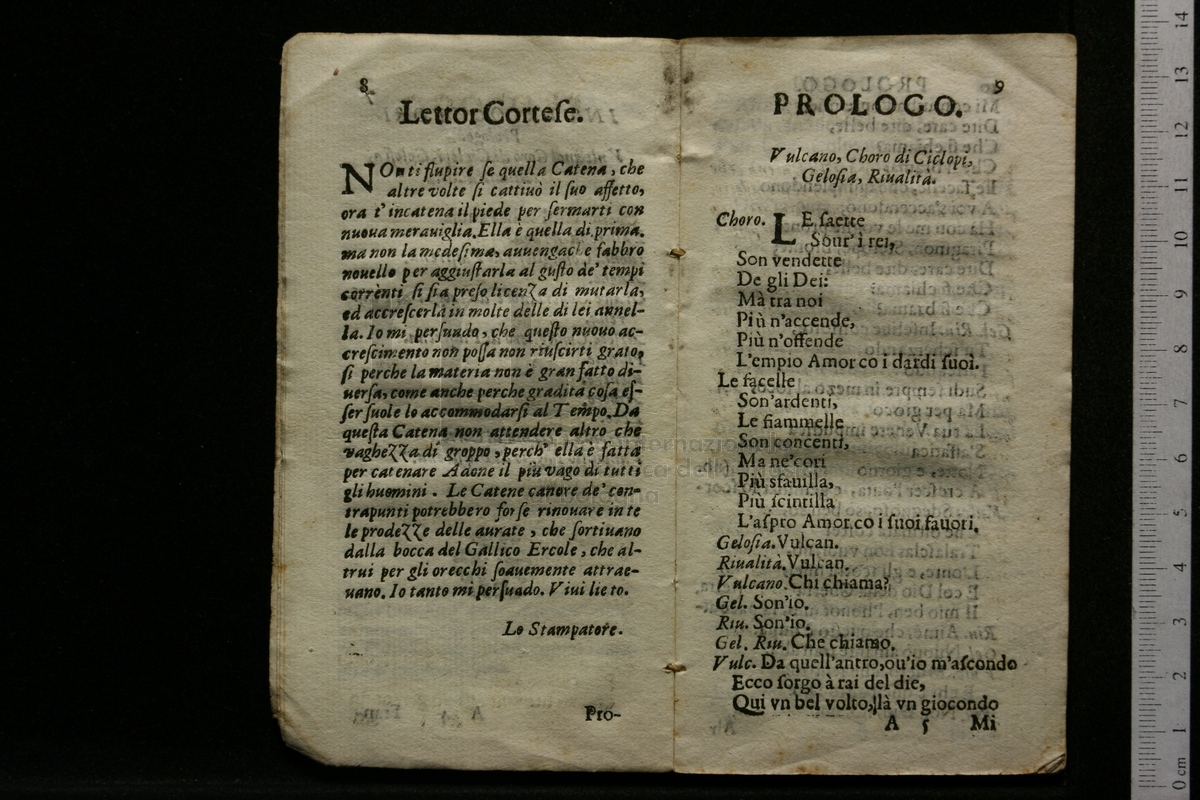 8
Lettor Corteſe.
NOn ti ſtupire ſe quella Catena, che
altre volte ſi cattiuò il ſuo affetto,
ora t'incatena il piede per fermarti con
nuoua merauiglia. Ella è quella di prima.
ma non la medeſima, auuengache fabbro
nouello per aggiuſtarla al guſto de' tempi
correnti ſi ſia preſo licenza di mutarla,
ed accreſcerla in molte delle di lei annel-
la. Io mi perſuado, che queſto nuouo ac-
creſcimento non poſſa non riuſcirti grato,
ſi perche la materia non è gran fatto di-
uerſa, come anche perche gradita coſa eſ-
ſer ſuole lo accommodarſi al Tempo. Da
queſta Catena non attendere altro che
vaghezza di groppo, perch' ella è fatta
per catenare Adone il più vago di tutti
gli huomini. Le Catene canore de' con-
trapunti potrebbero forſe rinouare in te
le prodezze delle aurate, che ſortiuano
dalla bocca del Gallico Ercole, che al-
trui per gli orecchi ſoauemente attrae-
uano. Io tanto mi perſuado. Viui lieto.
Lo Stampatore.
Pro-
9
PROLOGO.
Vulcano, Choro di Ciclopi,
Geloſia, Riualità.
Choro. LE ſaette
Sour' i rei,
Son vendette
De gli Dei:
Mà tra noi
Più n'accende,
Più n'offende
L'empio Amor co i dardi ſuoi.
Le facelle
Son'ardenti,
Le fiammelle
Son concenti,
Ma ne'cori
Più sfauilla,
Più ſcintilla
L'aſpro Amor co i ſuoi fauori.
Geloſia. Vulcan.
Riualità. Vulcan.
Vulcano. Chi chiama?
Gel. Son'io.
Riu. Son'io.
Gel. Riu. Che chiamo.
Vulc. Da quell'antro, ou'io m'aſcondo
Ecco ſorgo à rai del die,
Qui vn bel volto, là vn giocondo
A 5 Mi